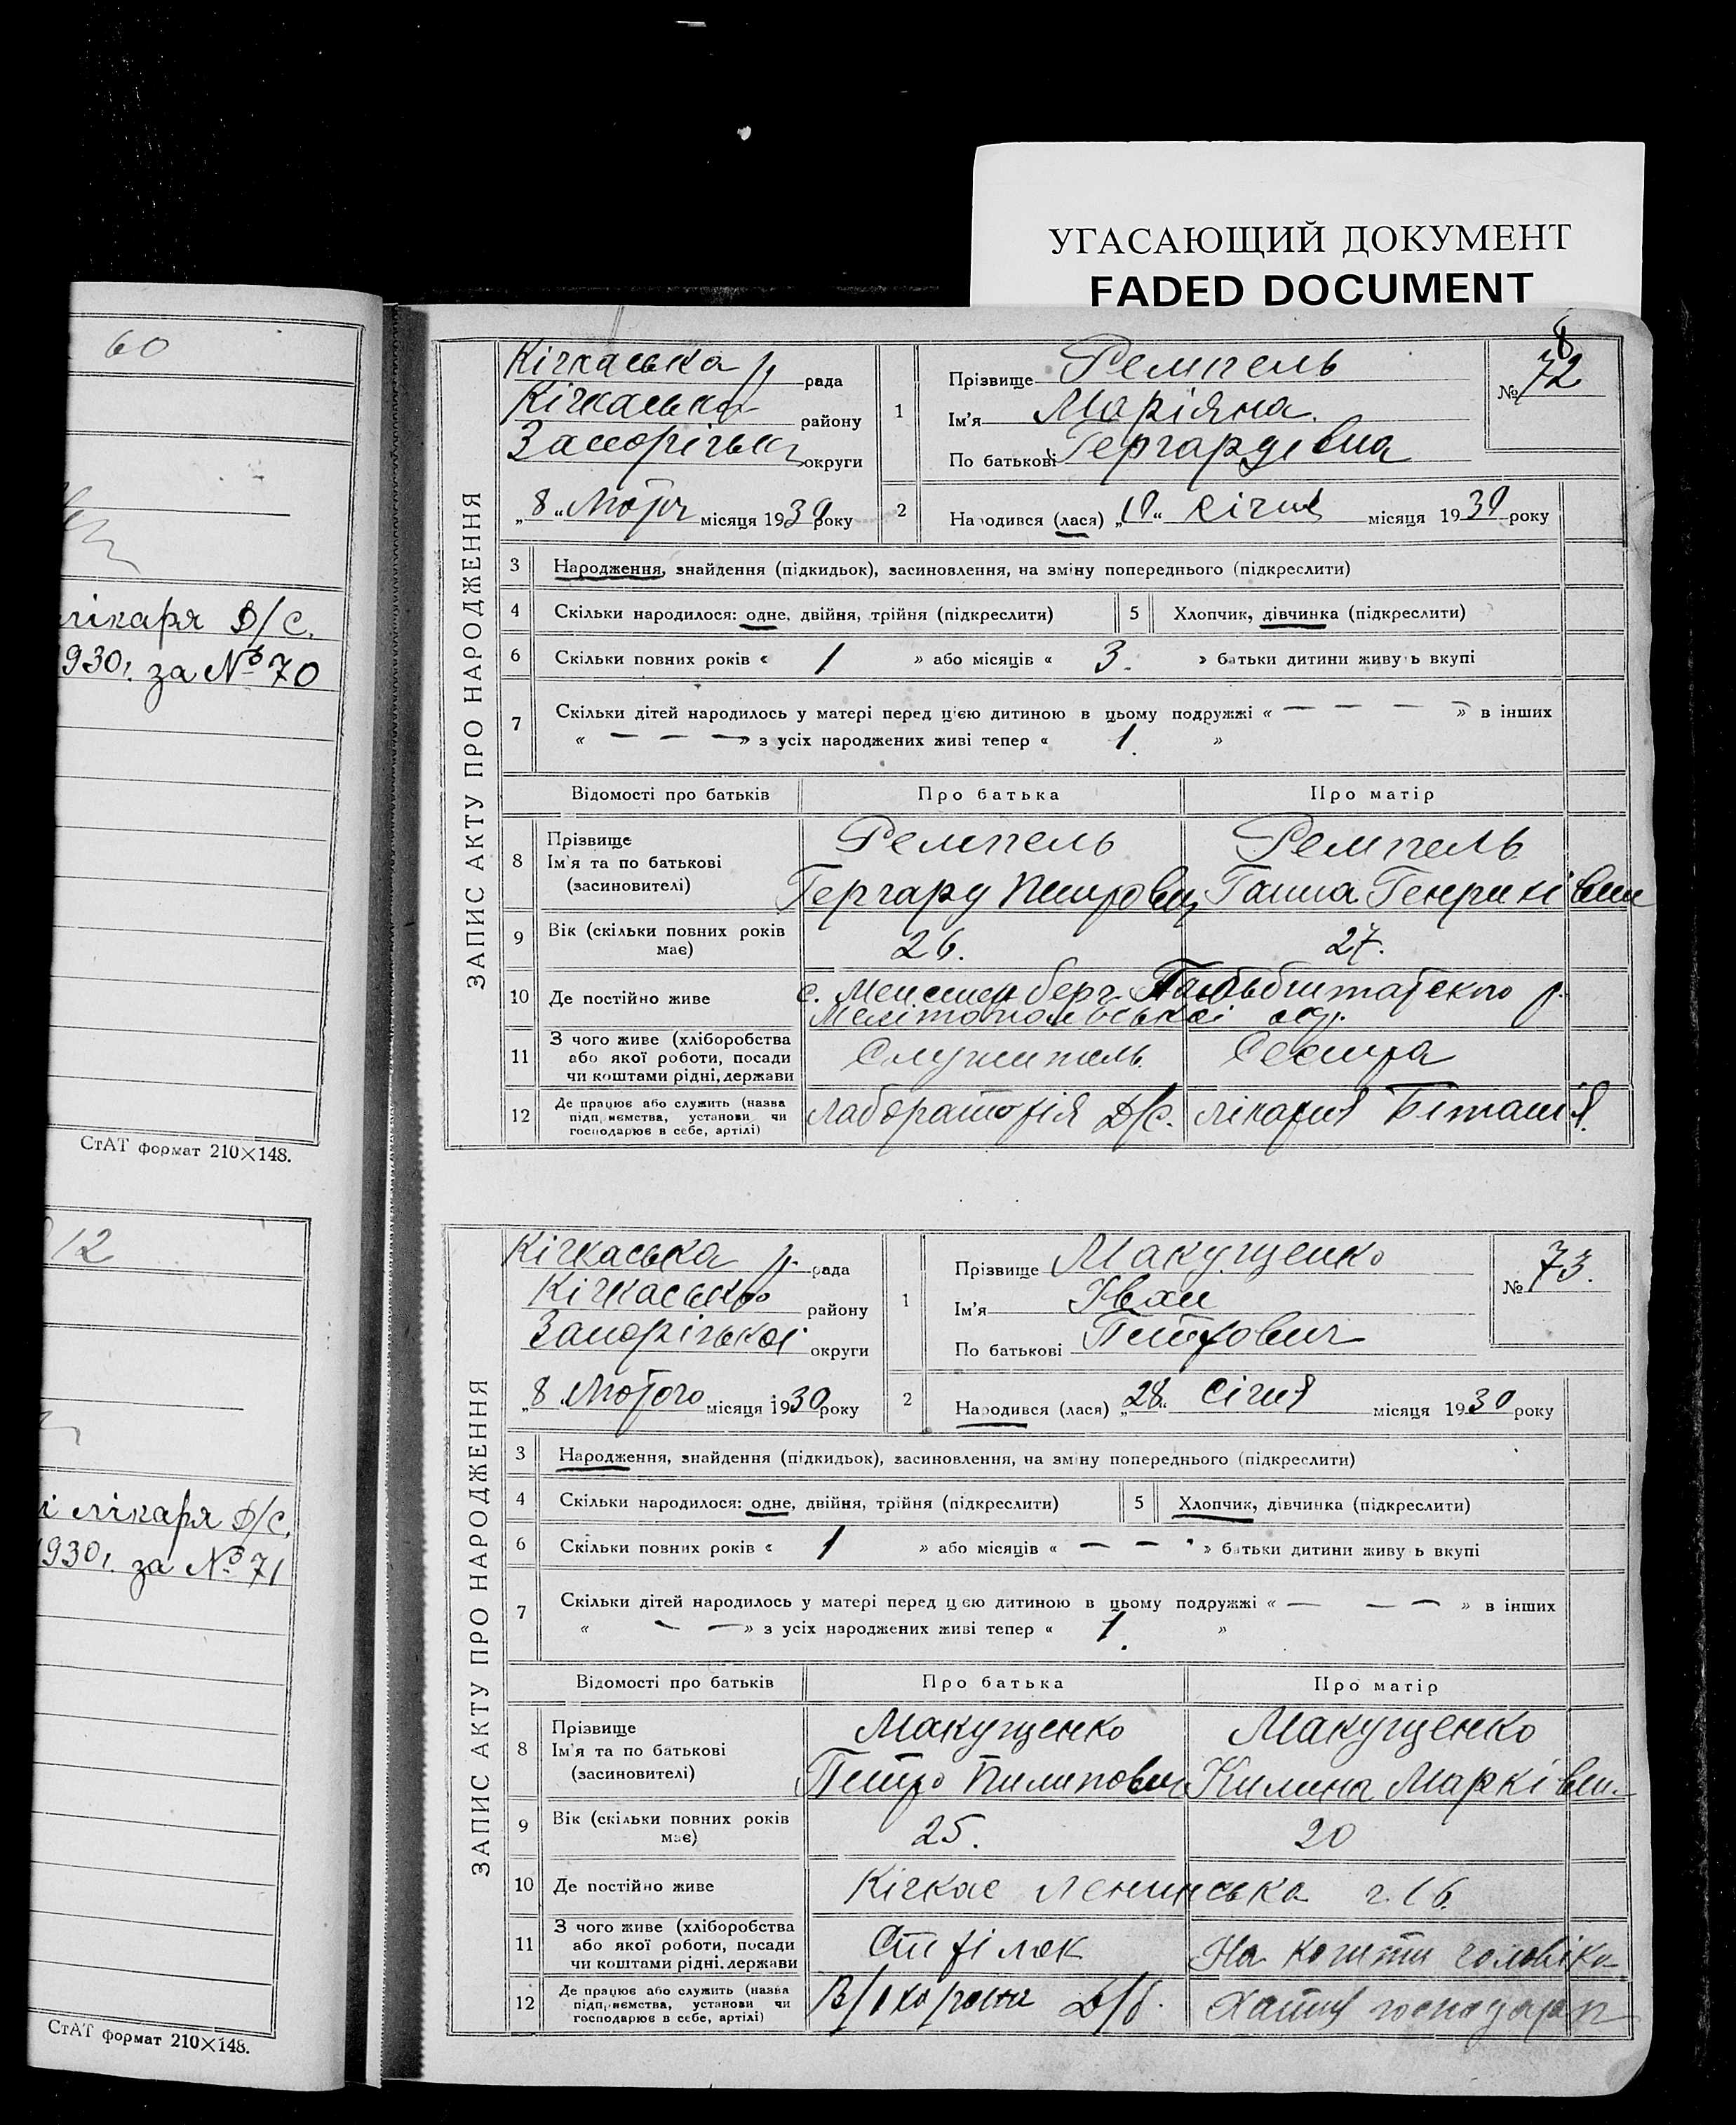 УГАСАЮЩИЙ ДОКУМЕНТ
FADED DOCUMENT
60
лікаря Д/С.
930г. за № 70
СтАТ формат 210×148.
12
і лікаря Д/С.
1930г. за № 71
СтАТ формат 210×148.
8
ЗАПИС АКТУ ПРО НАРОДЖЕННЯ
Кічкаська р. рада
Кічкаського району
Запорізької округи
„8“ Лютого місяця 1930 року
1 Прізвище Ремпель
Ім'я Маріяна
По батькові Гергардівна
№ 72
2 Народився (лася) „10“ Січня місяця 1930 року
3 Народження, знайдення (підкидьок), засиновлення, на зміну попереднього (підкреслити)
4 Скільки народилося: одне, двійня, трійня (підкреслити) 5 Хлопчик, дівчинка (підкреслити)
6 Скільки повних років « 1 » або місяців « 3. » батьки дитини живуть вкупі
7 Скільки дітей народилось у матері перед цією дитиною в цьому подружжі « — — — — » в інших
« — — — » з усіх народжених живі тепер « 1. »
Відомості про батьків Про батька Про матір
8 Прізвище
Ім'я та по батькові
(засиновителі)
Ремпель Ремпель
Гергард Петрович Ганна Генриківни
9 Вік (скільки повних років має) 26. 27.
10 Де постійно живе с. Гальбштатского р.
Мелітопольської окр.
11 З чого живе (хліборобства або якої роботи, посади чи коштами рідні, держави Служитель Сестра
12 Де працює або служить (назва підприємства, установи чи господарює в себе, артілі) Лабораторія Д/С. лікарня Бітанія.
ЗАПИС АКТУ ПРО НАРОДЖЕННЯ
Кічкаська р. рада
Кічкасько району
Запорізької округи
„8“ Лютого місяця 1930 року
1 Прізвище Макущенко
Ім'я Іван
По батькові Петрович
№ 73.
2 Народився (лася) „28“ Січня місяця 1930 року
3 Народження, знайдення (підкидьок), засиновлення, на зміну попереднього (підкреслити)
4 Скільки народилося: одне, двійня, трійня (підкреслити) 5 Хлопчик, дівчинка (підкреслити)
6 Скільки повних років « 1 » або місяців « — — » батьки дитини живуть вкупі
7 Скільки дітей народилось у матері перед цією дитиною в цьому подружжі « — — — » в інших
« — — » з усіх народжених живі тепер « 1. »
Відомості про батьків Про батька Про матір
8 Прізвище
Ім'я та по батькові
(засиновителі)
Макущенко Макущенко
Петро Пилипович Килина Марківн.
9 Вік (скільки повних років має) 25. 20
10 Де постійно живе Кічкас Ленинська 16
11 З чого живе (хліборобства або якої роботи, посади чи коштами рідні, держави Стрілок На кошти чоловіка
12 Де працює або служить (назва підприємства, установи чи господарює в себе, артілі) В/охорона Д/б. Хатня господар